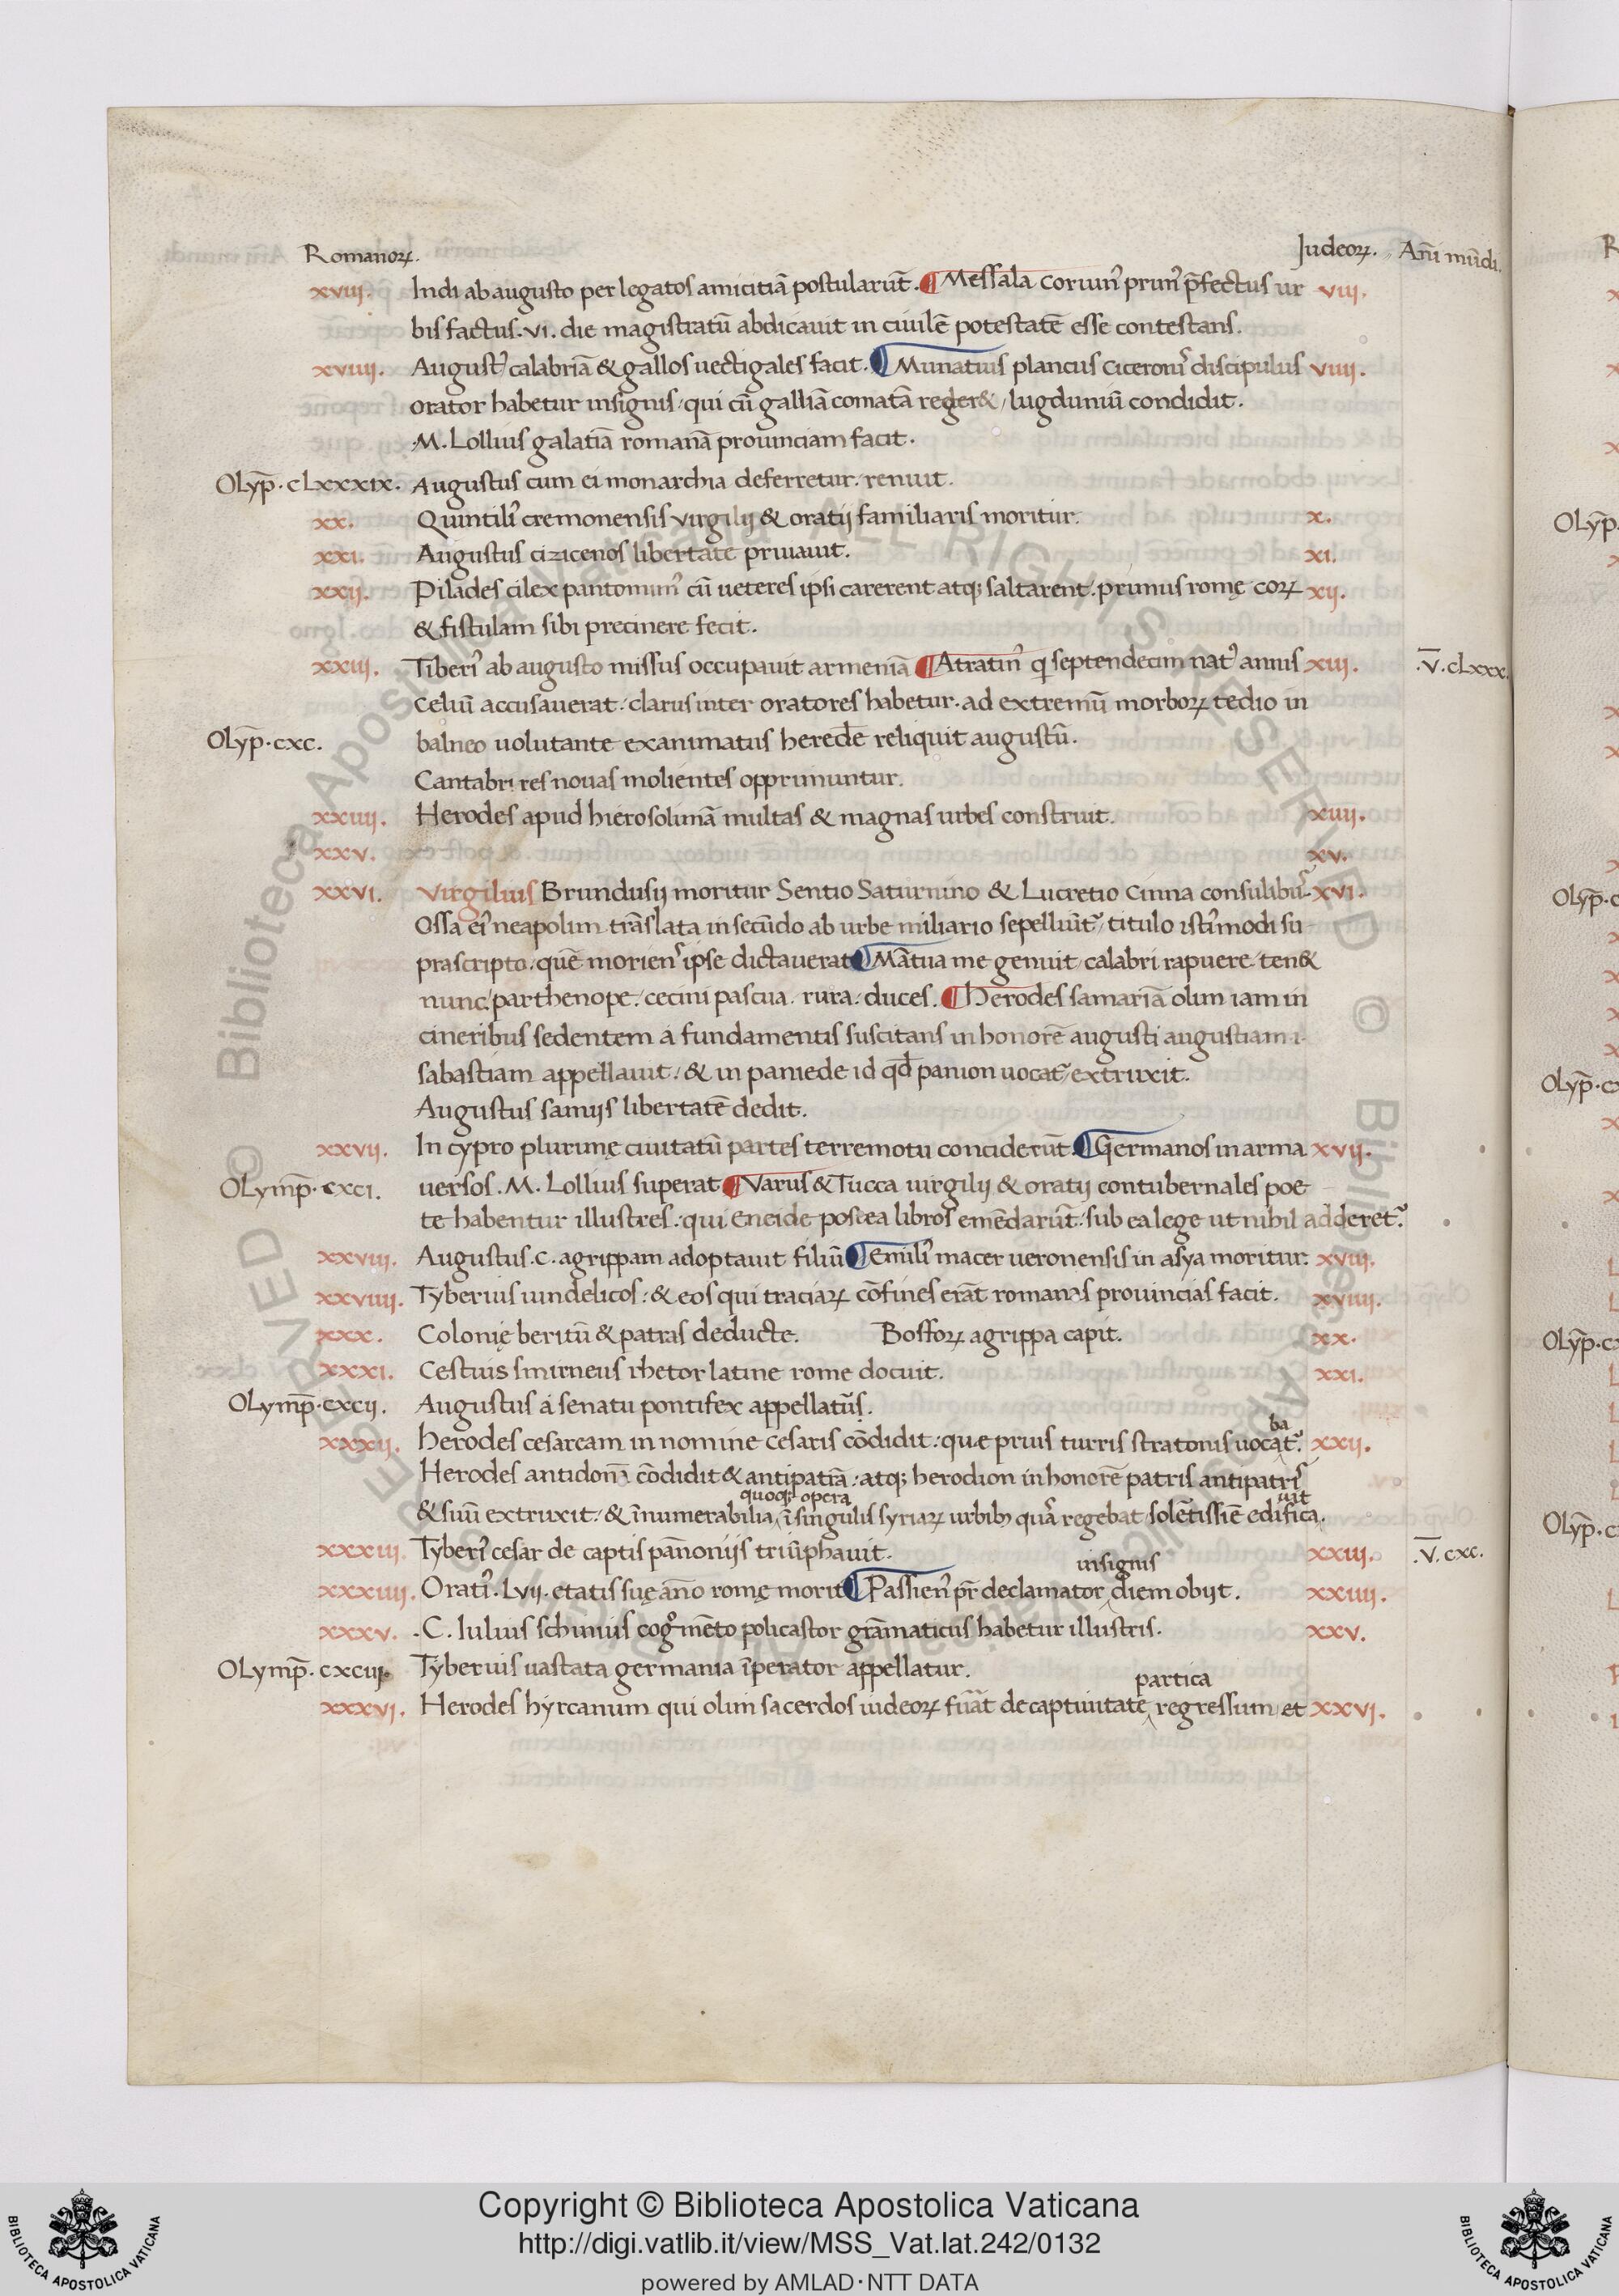 Romanoꝝ. Judeoꝝ. Añi mūdi.
xviii. Indi ab augusto per legatos amicitiā postularūt. ¶ Messala coruinꝰ primꝰ p̄fectus ur viii.
bis factus. vi. die magistratū abdicauit in ciuilē potestatē esse contestans.
xviiii. Augustꝰ calabriā & gallos uectigales facit. ¶ Munatius plancus Ciceronis discipulus viiii.
orator habetur insignis, qui cū galliā comatā reger&, lugduniū condidit.
.M. Lollius galatiā romanā prouinciam facit.
Olyp̄. cLxxxix. Augustus cum ei monarchia deferretur. renuit.
xx. Quintilꝰ cremonensis virgilij & oratij familiaris moritur. x.
xxi. Augustus cizicenos libertate priuauit. xi.
xxii. Pilades cilex pantomimꝰ cū ueteres ipsi carerent atq; saltarent. primus romę coꝝ xij.
& fistulam sibi precinere fecit.
xxiii. Tiberꝰ ab augusto missus occupauit armeniā ¶ Atratinꝰ q septendecim natꝰ annis xiii. .V̅. cLxxx.
Celiū accusauerat, clarus inter oratores habetur. ad extremū morboꝝ tedio in
Olyp̄. cxc. balneo uolutante exanimatus heredē reliquit augustū.
Cantabri res nouas molientes opprimuntur.
xxiiii. Herodes apud hierosolimā multas & magnas urbes construit. xiiii.
xxv. xv.
xxvi. Virgilius Brundusij moritur Sentio Saturnino & Lucretio Cinna consulibꝰ. xvi.
Ossa eiꝰ neapolim trāslata in secūdo ab urbe miliario sepelliūtꝰ, titulo istiꝰmodi su
prascripto, quē moriens ipse dictauerat ¶ Mātua me genuit, calabri rapuere, ten&
nunc, parthenope, cecini pascua. rura. duces. ¶ Herodes samariā olim iam in
cineribus sedentem a fundamentis suscitans in honorē augusti augustiam .i.
sabastiam appellauit, & in paniede id qd̄ panion uocatꝰ, extruxit.
Augustus samijs libertatē dedit.
xxvii. In cypro plurimę ciuitatū partes terremotu conciderūt. ¶ Germanos in arma xvii.
OLymp̄. cxci. uersos. M. Lollius superat ¶ Varus & Tucca uirgilij & oratij contubernales poe
te habentur illustres. qui Eneide postea libros emēdarūt. sub ea lege ut nihil adderetꝰ.
xxviii. Augustus. C. agrippam adoptauit filiū ¶ Emilꝰ macer ueronensis in asya moritur. xviii.
xxviiii. Tyberius uindelicos, & eos qui traciaꝝ cōfines erāt romanas prouincias facit. xviiii.
xxx. Colonię beritū & patras deducte. Bosfoꝝ agrippa capit. xx.
xxxi. Cestius smirneus rhetor latine rome docuit. xxi.
OLymp̄. cxcij. Augustus a senatu pontifex appellatus.
xxxii. Herodes cesaream in nomine Cesaris cōdidit. que prius turris stratonis uocabatꝰ. xxii.
Herodes antidonā cōdidit & antipatiā. atq; herodion in honorē patris antipatris
& suū extruxit. & īnumerabilia quoq; opera ī singulis syriaꝝ urbibꝫ quas regebat solētissiē edificauit.
xxxiii. Tyberꝰ cesar de captis pānonijs triūphauit. xxiii. .V̅. cxc.
xxxiiii. Oratꝰ. Lvii. etatis suę āno romę morit ¶ Passienꝰ pr̄ declamator insignis diem obijt. xxiiii.
xxxv. .C. Iulius schinius cogmēto policastor grāmaticus habetur illustris. xxv.
OLymp̄. cxciij. Tyberius uastata germania īperator appellatur.
xxxvi. Herodes hyrcanum qui olim sacerdos iudeoꝝ fuāt de captiuitate partica regressum, et xxvi.
Copyright © Biblioteca Apostolica Vaticana
http://digi.vatlib.it/view/MSS_Vat.lat.242/0132
powered by AMLAD·NTT DATA